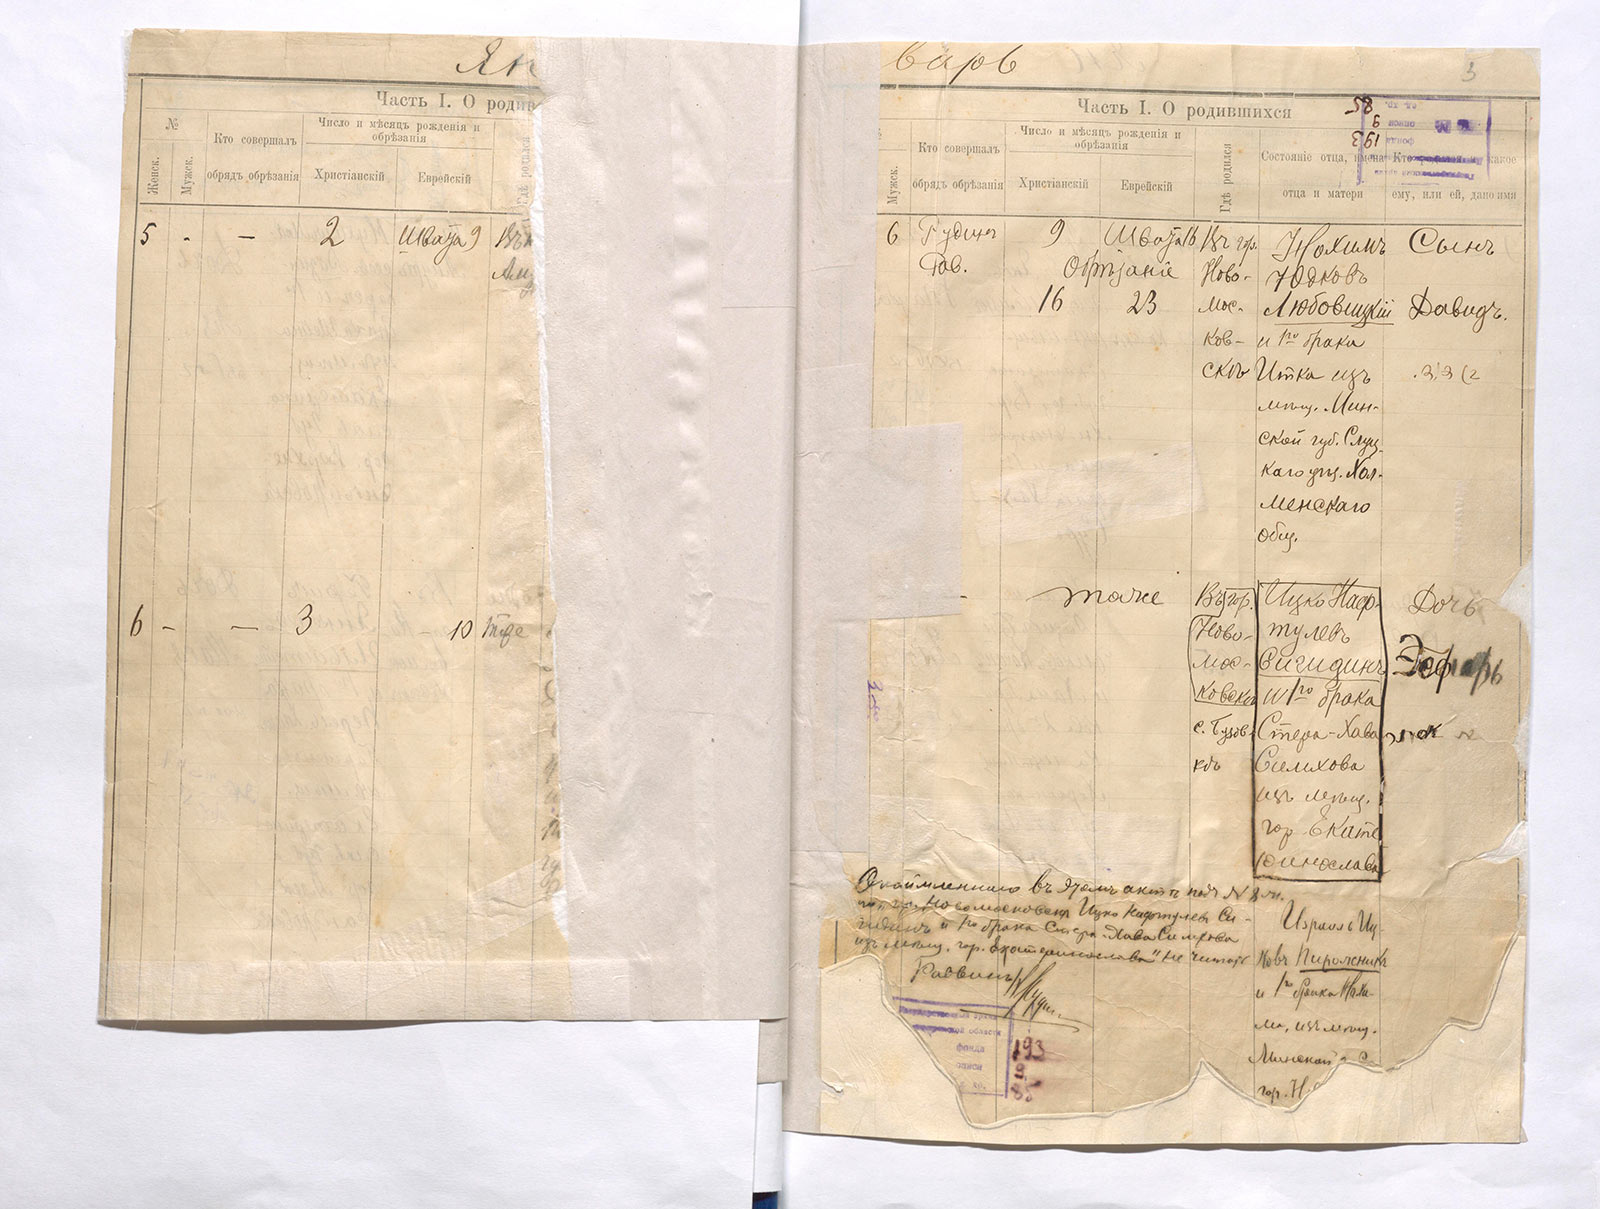 Ян
Часть I. О родив
№
Женск.
Мужск.
Кто совершалъ
обрядъ обрѣзанія
Число и мѣсяцъ рожденія и
обрѣзанія
Христіанскій
Еврейскій
Гдѣ родился
5 - - 2 Швата 9 Въ
6 - - 3 - 10 тоже
варь
3
Часть I. О родившихся
Мужск.
Кто совершалъ
обрядъ обрѣзанія
Число и мѣсяцъ рожденія и
обрѣзанія
Христіанскій
Еврейскій
Гдѣ родился
Состояніе отца, имена
отца и матери
Кто какое
ему, или ей, дано имя
фонда 193
описи 9
85
6
Рудинъ
Рав.
9 Швата 16
Обрѣзаніе
16 23
Въ гор.
Ново-
мос-
ков-
скѣ
Нохимъ
Юдковъ
Любовицкій
и 1го брака
Итка изъ
мѣщ. Мин-
ской губ. Слуц
каго уѣз. Хол-
менскаго
общ.
Сынъ
Давидъ.
тоже
Въ гор.
Ново-
мос-
ковска
с. Бузов-
кѣ
Ицко Наф-
тулевъ
Сигидинъ
и 1го брака
Стера-Хава
Симхова
изъ мѣщ.
гор. Екате
ринослава
Дочь
Эсфирь
Окаймленнаго въ этомъ актѣ подъ №
Новомосковска Ицко Нафтулевъ Си-
гидинъ и 1го брака Стера-Хава Симхова
изъ мѣщ. гор. Екатеринослава" не читать
Раввинъ
Израиль Иц-
ковъ Пироженикъ
и 1го брака Нехи-
ма, изъ мѣщ.
Минской
гор. Н
Государственный архив
ской области
фонда 193
описи 9
85